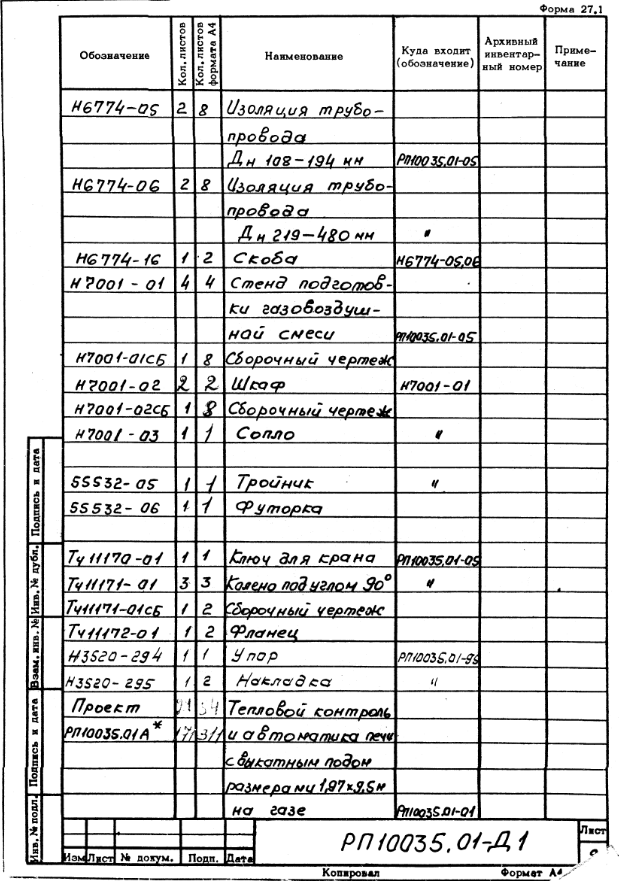 Форма 27.1
Обозначение Кол. листов Кол. листов формата А4 Наименование Куда входит (обозначение) Архивный инвентар-ный номер Приме-чание
Н6774-05 2 8 Изоляция трубо-
провода
Дн 108-194 мм РП10035.01-05
Н6774-06 2 8 Изоляция трубо-
провода
Дн 219-480 мм "
Н6774-16 1 2 Скоба Н6774-05,06
Н7001-01 4 4 Стенд подготов-
ки газовоздуш-
ной смеси РП10035.01-05
Н7001-01СБ 1 8 Сборочный чертеж
Н7001-02 2 2 Шкаф Н7001-01
Н7001-02СБ 1 8 Сборочный чертеж
Н7001-03 1 1 Сопло "
55532-05 1 1 Тройник "
55532-06 1 1 Футорка
Ту11170-01 1 1 Ключ для крана РП10035.01-05
Ту11171-01 3 3 Колено под углом 90° "
Ту11171-01СБ 1 2 Сборочный чертеж
Ту11172-01 1 2 Фланец
Н3520-294 1 1 Упор
Н3520-295 1 2 Накладка "
Проект Тепловой контроль
РП10035.01А* и автоматика печи
с выкатным подом
размерами 1,97х9,5м
на газе РП10035.01-01
РП10035.01-Д1
Лист
Изм Лист № докум. Подп. Дата
Копировал Формат А4
Подпись и дата
Инв. № дубл.
Взам. инв. №
Подпись и дата
Инв. № подл.